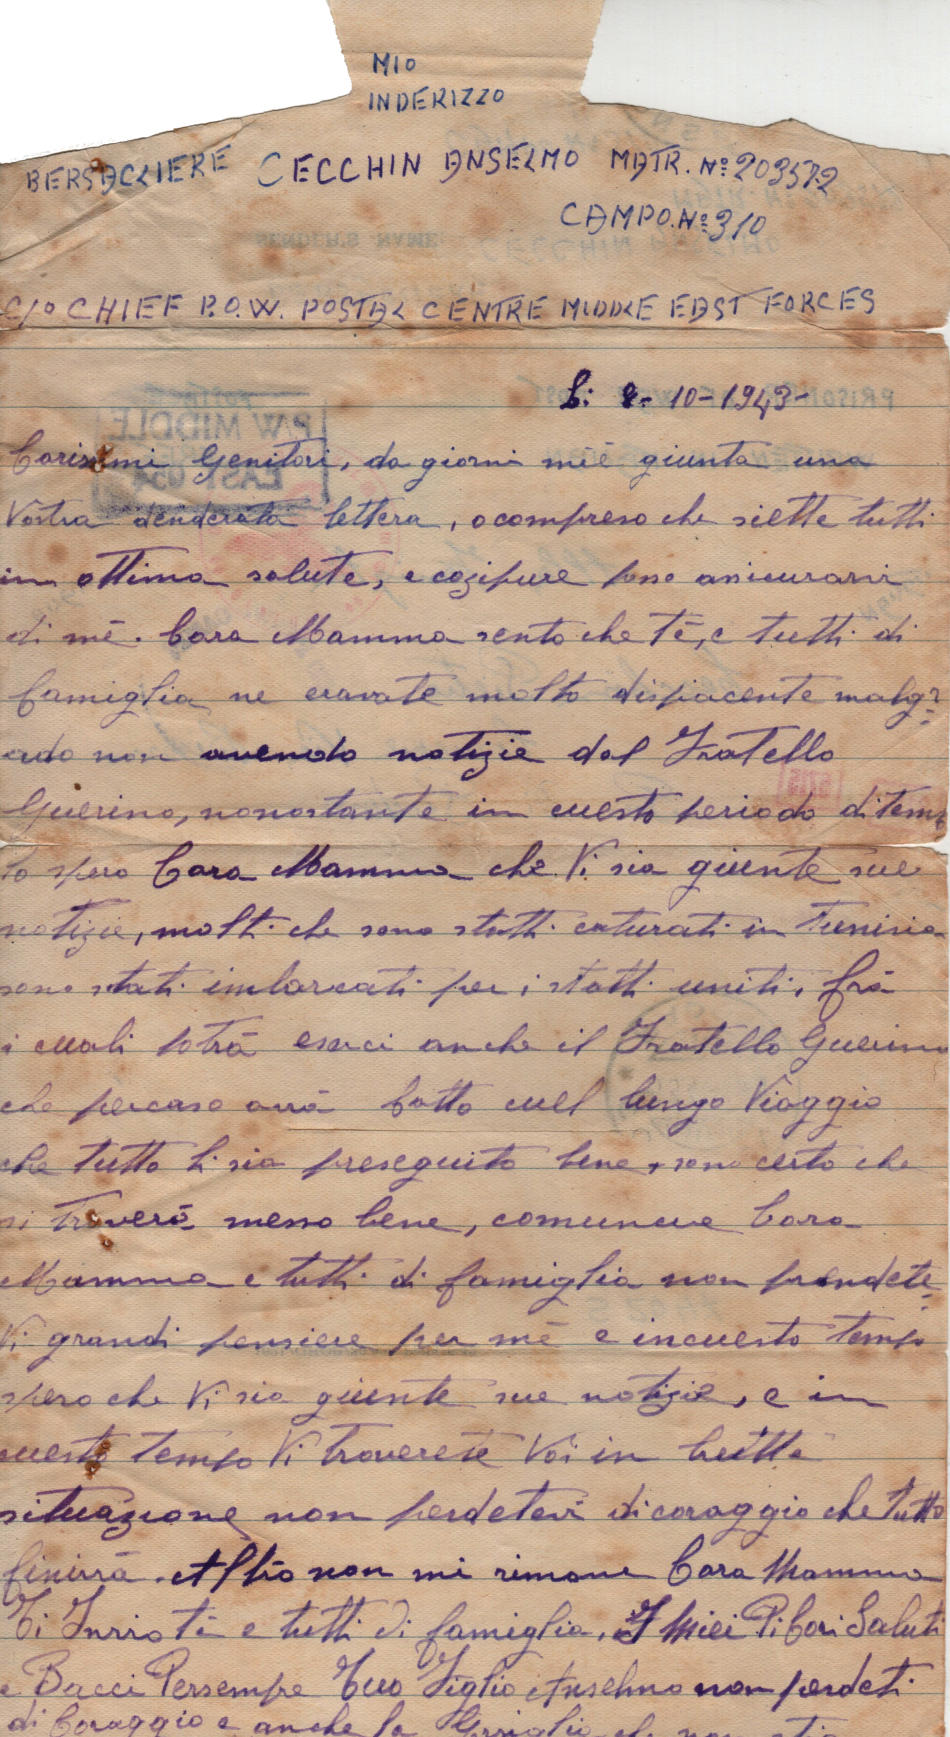 MIO
INDERIZZO
BERSAGLIERE CECCHIN ANSELMO MATR. Nº 203572
CAMPO. Nº 310
C/O CHIEF P.O.W. POSTAL CENTRE MIDDLE EAST FORCES
Li 8-10-1943-
Carissimi Genitori, da giorni mi é giunta una
Vostra desiderata lettera, o compreso che siette tutti
in ottima salute, e cozipure posso assicurarvi
di mé. Cara Mamma sento che té, e tutti di
famiglia ne eravate molto dispiacente malg-
rado non avendo notizie dal Fratello
Guerino, nonostante in cuesto periodo di tempo
Io spero Cara Mamma che Vi sia giunte sue
notizie, molti che sono statti caturati in Tunisia
sono stati imbarcati per i statti uniti, frà
i cuali potrà esserci anche il Fratello Guerino
che percaso avrà fatto cuel lungo Viaggio
che tutto li sia proseguito bene, sono certo che
si troverà messo bene, comuncue Cara
Mamma e tutti di famiglia non prendete-
Vi grandi pensiere per mé e incuesto tempo
spero che Vi sia giunte sue notizie, e in
cuesto tempo Vi troverete Voi in brutta
situazione non perdetevi di coraggio che tutto
finirrà. Altro non mi rimane Cara Mamma
Ti Invio té e tutti di famiglia. I Miei Più Cari Saluti
e Bacci Persempre Tuo Figlio Anselmo non perdeti
di Coraggio e anche la che non stia
POSTAGE
P/W MIDDLE
EAST 054
PRISONER
SENDER'S NAME